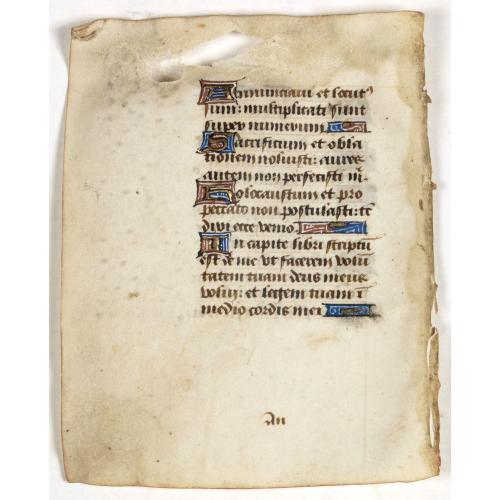 Annunciavi et locut9
sum: multiplicati sunt
super numerum
Sacrificium et obla
tionem noluisti: aures
autem non perfecisti m̄.
Holocaustum et pro
peccato non postulasti: tc̄
dixi ecce venio.
In capite libri scriptū
est de me vt facerem volū
tatem tuam deus meus
volui: et legem tuam ī
medio cordis mei
An